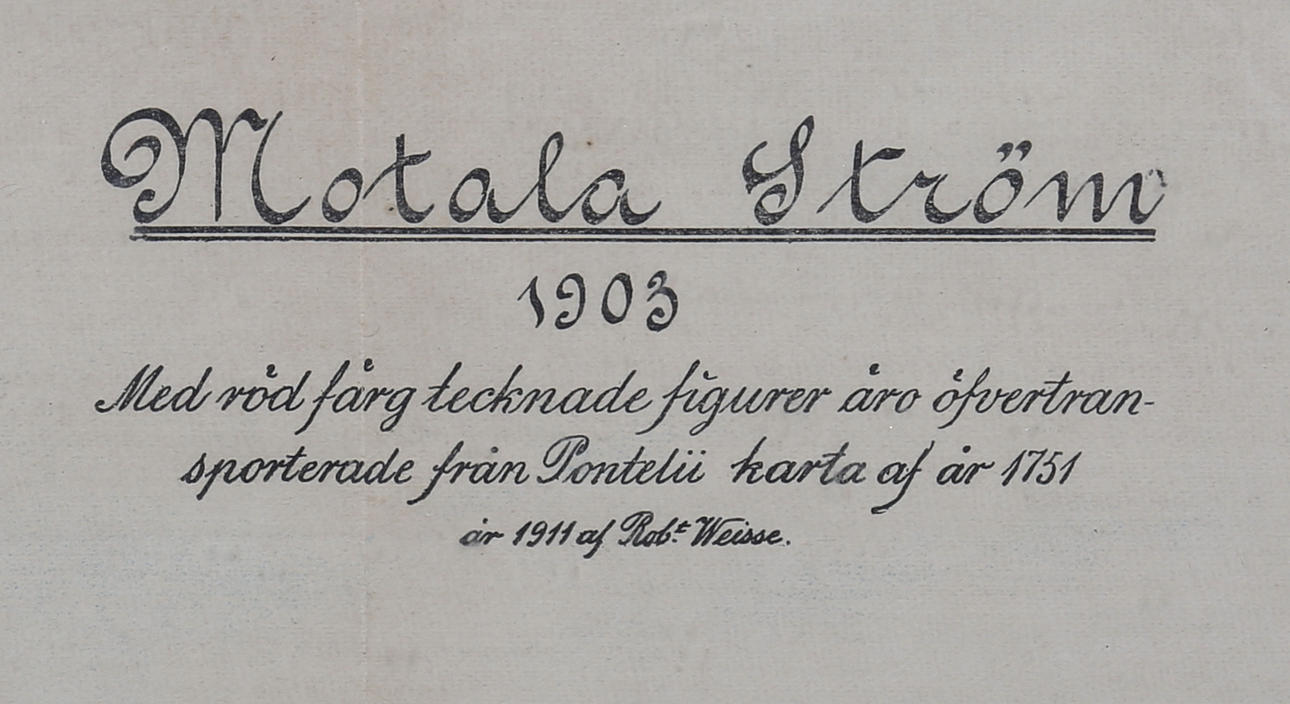 Motala Ström
1903
Med röd färg tecknade figurer äro öfvertran-
sporterade från Pontelii karta af år 1751
år 1911 af Rob:t Weisse.